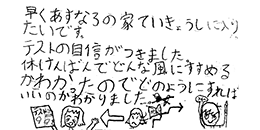 早くあすなろの家ていきょうしに入り
たいです。
テストの自信がつきました
休けんばんでどんな風にすすめる
かわかったのでどのようにすれば
いいのかわかりました…